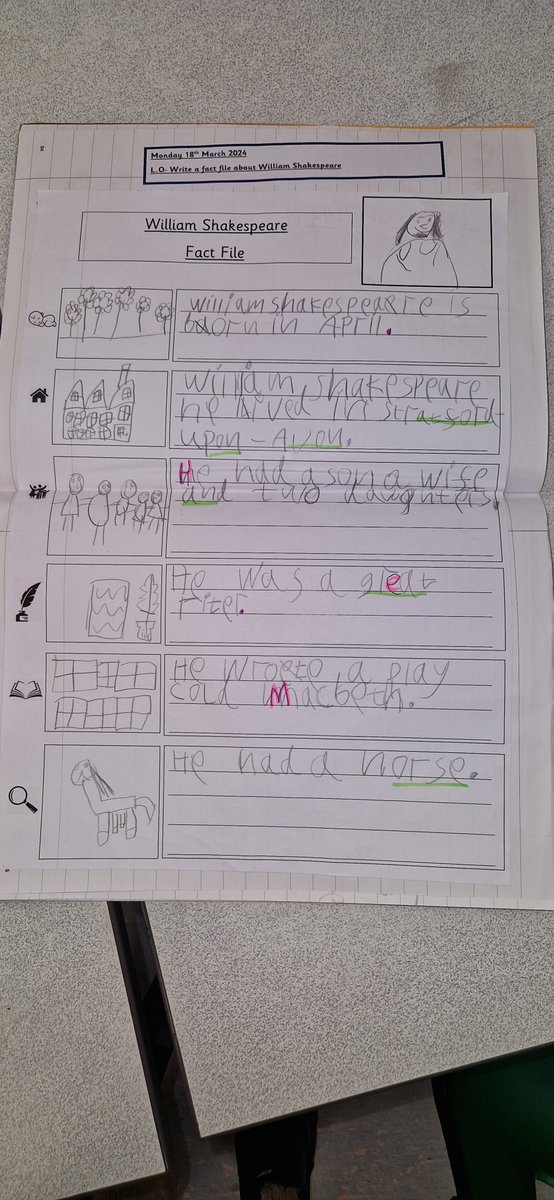 Monday 18th March 2024
L.O- Write a fact file about William Shakespeare
William Shakespeare
Fact File
william shakespeare is
born in April.
William shakespeare
he lived in stratford-
upon-Avon.
He had a son a wife
and two daughters.
He was a great
riter.
He wrote a play
cold Macbeth.
He had a horse.